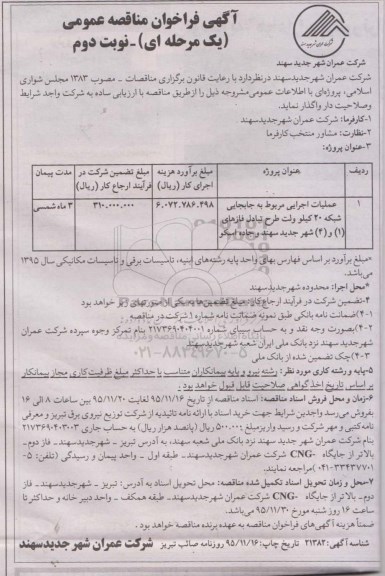 آگهی فراخوان مناقصه عمومی
(یک مرحله ای) - نوبت دوم
شرکت عمران شهر جدید سهند
شرکت عمران شهرجدیدسهند درنظردارد با رعایت قانون برگزاری مناقصات - مصوب ۱۳۸۳ مجلس شورای
اسلامی، پروژه‌ای با اطلاعات عمومی مشروحه ذیل را ازطریق مناقصه با ارزیابی ساده به شرکت واجد شرایط
وصلاحیت دار واگذار نماید.
۱-کارفرما: شرکت عمران شهرجدیدسهند
۲-نظارت: مشاور منتخب کارفرما
۳-عنوان پروژه:
ردیف عنوان پروژه مبلغ برآورد هزینه اجرای کار (ریال) مبلغ تضمین شرکت در فرآیند ارجاع کار (ریال) مدت پیمان
۱ عملیات اجرایی مربوط به جابجایی شبکه ۲۰ کیلو ولت طرح تبادل فازهای (۱) و (۲) شهر جدید سهند و جاده اسکو ۶.۰۷۲.۷۸۶.۴۹۸ ۳۱۰.۰۰۰.۰۰۰ ۳ ماه شمسی
*مبلغ برآورد بر اساس فهارس بهای واحد پایه رشته‌های ابنیه، تاسیسات برقی و تاسیسات مکانیکی سال ۱۳۹۵
می‌باشد.
*محل اجرا: محدوده شهرجدیدسهند
۴-تضمین شرکت در فرآیند ارجاع کار: مبلغ تضمین‌ها به یکی از صورتهای زیر خواهد بود
۴-۱)ضمانت نامه بانکی طبق نمونه ضمانت نامه شماره ۱ شرکت در مناقصه
۴-۲)بصورت وجه نقد و به حساب سیبای شماره ۲۱۷۳۶۹۰۴۰۴۰۰۱ بنام تمرکز وجوه سپرده شرکت عمران
شهر جدید سهند نزد بانک ملی ایران شعبه شهرجدیدسهند
۴-۳)چک تضمین شده از بانک ملی
۵-پایه و رشته کاری مورد نظر: رشته نیرو و پایه پیمانکاران متناسب با حداکثر مبلغ ظرفیت کاری مجاز پیمانکار
بر اساس تاریخ اخذ گواهی صلاحیت قابل قبول خواهد بود.
۶-زمان و محل فروش اسناد مناقصه: اسناد مناقصه از تاریخ ۹۵/۱۱/۱۶ لغایت ۹۵/۱۱/۲۰ بین ساعات ۸ الی ۱۶
بفروش می‌رسد واجدین شرایط جهت خرید اسناد با ارائه نامه تائیدیه از شرکت توزیع نیروی برق تبریز و معرفی
نامه کتبی و مهر شرکت و رسید واریز مبلغ ۵۰۰.۰۰۰ ریال (پانصد هزار ریال) به حساب جاری ۲۱۷۳۶۹۰۴۰۳۰۰۳
بنام شرکت عمران شهر جدید سهند نزد بانک ملی شعبه سهند، به آدرس تبریز - شهرجدیدسهند- فاز دوم-
بالاتر از جایگاه CNG- شرکت عمران شهرجدیدسهند- طبقه اول - واحد پیمان و رسیدگی (تلفن: ۵-
۰۴۱-۳۳۴۳۷۷۰۱) مراجعه نمایند.
۷-محل و زمان تحویل اسناد تکمیل شده مناقصه: محل تحویل اسناد به آدرس: تبریز - شهرجدیدسهند- فاز
دوم- بالاتر از جایگاه CNG- شرکت عمران شهرجدیدسهند- طبقه همکف - واحد دبیر خانه و حداکثر تا
ساعت ۱۶ روز شنبه مورخ ۹۵/۱۱/۳۰ می‌باشد.
ضمنا هزینه آگهی‌های فراخوان مناقصه به عهده برنده مناقصه خواهد بود.
شناسه آگهی: ۲۱۳۸۲ تاریخ چاپ: ۹۵/۱۱/۱۶ روزنامه صائب تبریز شرکت عمران شهر جدیدسهند
۰۲۱-۸۸۳۴۹۶۷۰-۵